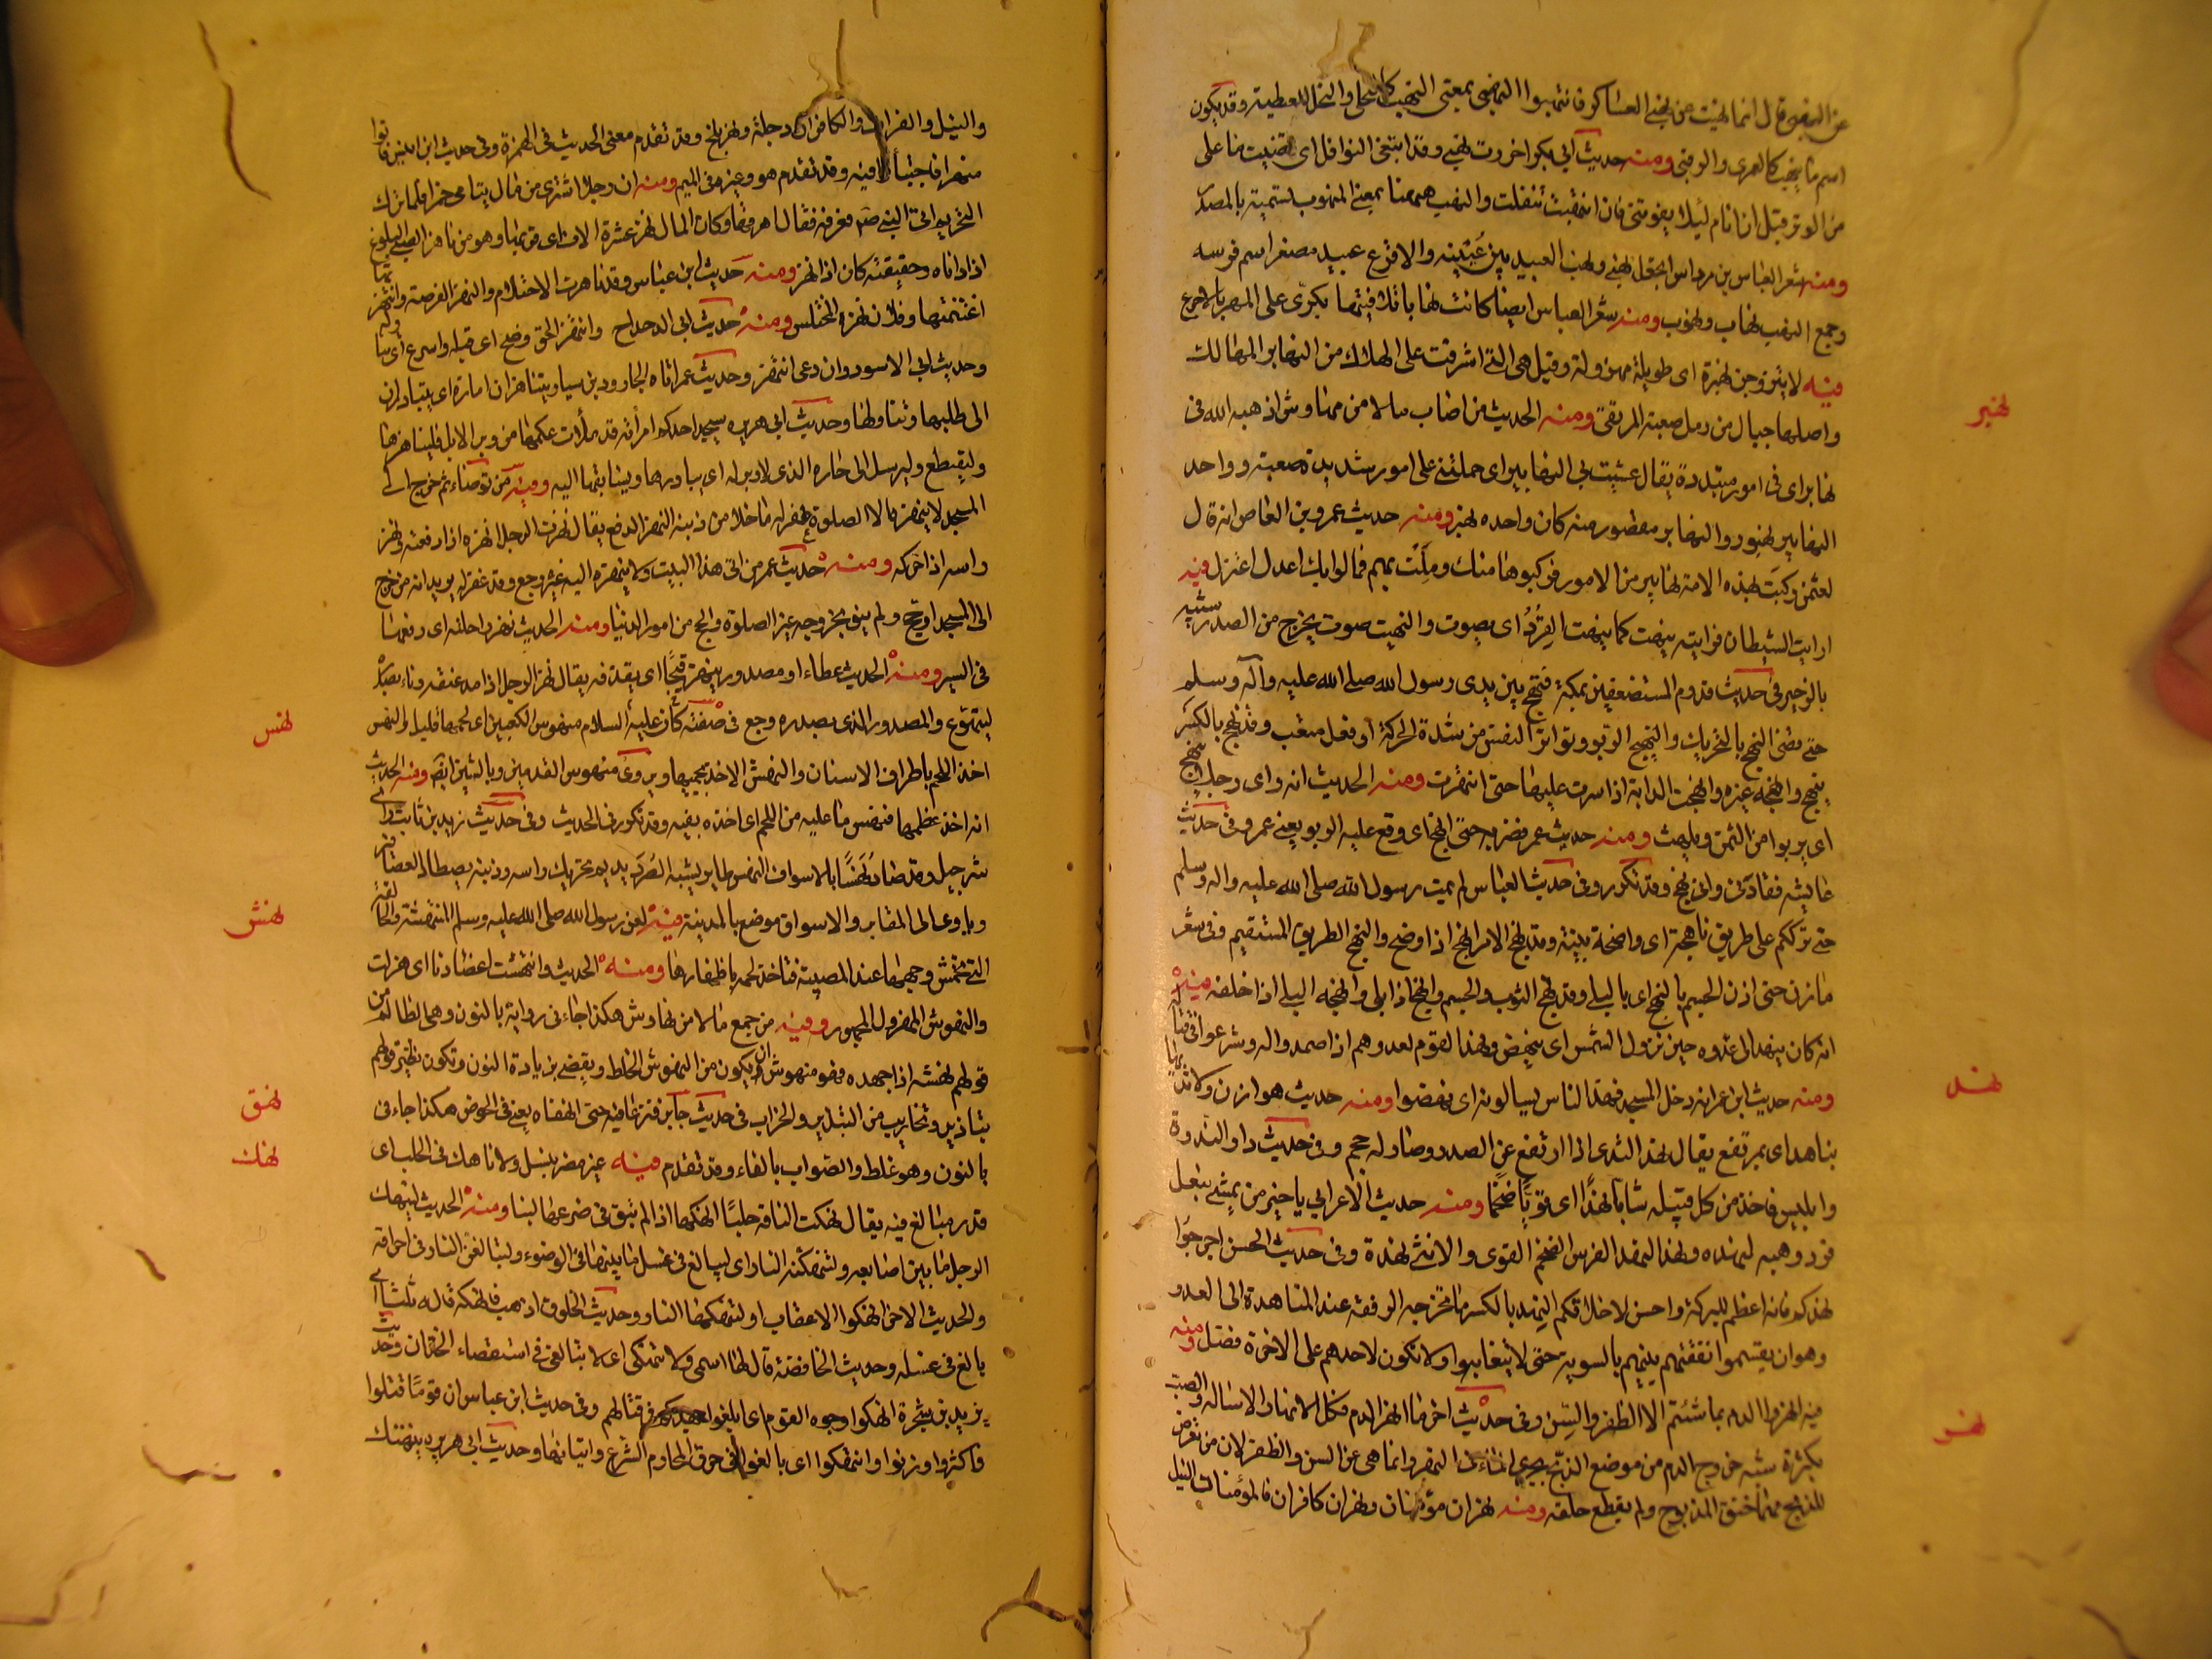 قال انما نهيت من نهبي العساكر فانتهبوا النهبى بمعنى النهب كالنحلى والنحل للعطية وقد يكون
اسم ما ينهب كالعمرى والرقبى ومنه حديث ابي بكر احرزت نهبي وابتغي النوافل اي قضيت ما على
من الوتر قبل ان انام ليلا يفوتني فان انتبهت تنفلت والنهب ههنا بمعنى المنهوب تسمية بالمصدر
ومنه شعر العباس بن مرداس اتجعل نهبي ونهب العبيد بين عيينه والاقرع عبيد مصغرا اسم فرسه
وجمع النهب نهاب ونهوب ومنه شعر العباس ايضا كانت نهابا تلافيتها بكرّي على المهر بالاجرع
فيه لا يتزوجن نهبرة اي طويلة مهزولة وقيل هي التي اشرفت على الهلاك من النهابر المهالك
واصلها جبال من رمل صعبة المرتقى ومنه الحديث من اصاب مالا من مهاوش اذهبه الله في
نهابر اي في امور متبددة يقال غشيت بي النهابير اي حملتني على امور شديدة صعبة وواحد
النهابير نهبور والنهابر مقصور منه كان واحده نهبر ومنه حديث عمرو بن العاص انه قال
لعثمن ركبت بهذه الامة نهابير من الامور فركبوها منك وملت بهم فمالوا بك اعدل او اعتزل فيه
ارايت الشيطان فرايته ينهت كما ينهت القرد اي يصوت والنهيت صوت يخرج من الصدر شبيه
بالزحير في حديث قدوم المستضعفين بمكة فنهج بين يدي رسول الله صلى الله عليه وآله وسلم
حتى قضى النهج بالتحريك والنهيج الربو وتواتر النفس من شدة الحركة او فعل متعب وقد نهج بالكسر
ينهج وانهجه غيره وانهجت الدابة اذا سرت عليها حتى انبهرت ومنه الحديث انه راى رجلا ينهج
اي يربوا من السمن ويلهث ومنه حديث عمر فضربه حتى انهج اي وقع عليه الربو يعني عمر وفي حديث
عايشه فقادتني واني لانهج وقد تكرر وفي حديث العباس لم يمت رسول الله صلى الله عليه واله وسلم
حتى ترككم على طريق ناهجة اي واضحة بينة وقد نهج الامر وانهج اذا وضح والنهج الطريق المستقيم وفي شعر
مازن حتى اذن الجسم بالنهج اي بالبلى وقد نهج الثوب والجسم وانهج اذا بلى وانهجه البلى اذا اخلقه فيه
انه كان ينهد الى عدوه حين تزول الشمس اي ينهض ونهد القوم لعدوهم اذا صمدوا له وشرعوا في قتاله
ومنه حديث ابن عمر انه دخل المسجد فنهد الناس يسالونه اي نهضوا ومنه حديث هوازن ولا ثديها
بناهد اي بمرتفع يقال نهد الثدي اذا ارتفع عن الصدر وصار له حجم وفي حديث دار الندوة
وابليس فاخذ من كل قبيلة شابا نهدا اي قويا ضخما ومنه حديث الاعرابي يا خير من يمشي بنعل
فرد وهبه لنهده ونهد النهد الفرس الضخم القوي والانثى نهدة وفي حديث الحسن اخرجوا
نهدكم فانه اعظم للبركة واحسن لاخلاقكم النهد بالكسر ما تخرجه الرفقة عند المناهدة الى العدو
وهو ان يقسموا نفقتهم بينهم بالسوية حتى لا يتغابنوا ولا يكون لاحدهم على الاخرة فضل ومنه
فيه انهروا الدم بما شئتم الا الظفر والسن وفي حديث اخر ما انهر الدم فكل الانهار الاسالة والصب
بكثرة شبه خروج الدم من موضع الذبح بجري الماء في النهر وانما نهى عن السن والظفر لان من تعرض
للذبح بهما خنق المذبوح ولم يقطع حلقه ومنه نهران مؤمنان ونهران كافران فالمؤمنان النيل
نهبر
نهد
نهر
والنيل والفرات والكافران دجلة ونهر بلخ وقد تقدم معنى الحديث في الهمزة وفي حديث ابن انيس فاتوا
منهرا فاختبأوا فيه وقد تقدم هو وغيره في الميم ومنه ان رجلا اشترى من مال يتامى خمرا فلما نزل
التحريم اتى النبي صم فعرفه فقال اهرقها وكان المال نهز عشرة الاف اي قربها وهو من ناهز الصبي البلوغ
اذا داناه وحقيقته كان اذا نهز ومنه حديث ابن عباس وقد ناهزت الاحتلام والنهز الفرصة وانتهزتها
اغتنمتها وفلان نهزة المختلس ومنه حديث ابي الدحداح وانتهز الحق وضح اي قبله واسرع الى تناوله
وحديث ابي الاسود وان دعي انتهز وحديث عمر اتاه الجارود بن سيار يتناهزان امارة اي يتبادران
الى طلبها وتناولها وحديث ابي هريره سيجد احدكم امرأته قد ملأت عكمها من وبر الابل فليناهزها
وليقتطع وليرسل الى جاره الذي لا وبر له اي يبادرها ويسابقها اليه ومنه من توضاء ثم خرج الى
المسجد لا ينهزه الا الصلوة غفر له ما خلا من ذنبه النهز الدفع يقال نهزت الرجل انهزه اذا دفعته ونهز
راسه اذا حركه ومنه حديث عمر من اتى هذا البيت ولا ينهزه اليه غيره رجع وقد غفر له يريد انه من خرج
الى المسجد او حج ولم ينو بخروجه غير الصلوة والحج من امور الدنيا ومنه الحديث نهز راحلته اي دفعها
في السير ومنه الحديث عطاء او مصدور ينهز قيحا اي يقذفه يقال نهز الرجل اذا مد عنقه وناء بصدره
ليتهوع والمصدور الذي بصدره وجع في صفته كان عليه السلام منهوس الكعبين اي لحمهما قليل والنهس
اخذ اللحم باطراف الاسنان والنهش الاخذ بجميعها ويروى منهوس القدمين وبالشين ايضا ومنه الحديث
انه اخذ عظما فنهس ما عليه من اللحم اي اخذه بفيه وقد تكرر في الحديث وفي حديث زيد بن ثابت راى
شرحبيل وقد صاد نهسا بالاسواف النهس طاير يشبه الصرد يديم تحريك راسه وذنبه يصطاد العصافير
وياوى الى المقابر والاسواق موضع بالمدينة فيه لعن رسول الله صلى الله عليه وسلم المنتهشة والحالقة
التي تخمش وجهها عند المصيبة فتاخذ لحمه باظفارها ومنه الحديث وانتهشت اعضادنا اي هزلت
والمنهوش المهزول المجهود وفيه من جمع مالا من نهاوش هكذا جاء في رواية بالنون وهي المظالم من
قولهم نهشه اذا جهده فهو منهوش او ان يكون من الهوش الخلط ويقضي بزيادة النون وتكون نظير قولهم
تباذير وتخاريب من التبذير والخراب في حديث جابر فنزعنا فيه حتى انهقناه يعني في الحوض هكذا جاء في
بالنون وهو غلط والصواب بالفاء وقد تقدم فيه غير مضر بنسل ولا ناهك في الحلب اي
غير مبالغ فيه يقال نهكت الناقة حلبا انهكها اذا لم تبق في ضرعها لبنا ومنه الحديث لينهك
الرجل ما بين اصابعه ولتنهكنه النار اي ليبالغ في غسل ما بينهما في الوضوء وليبالغن النار في احراقه
والحديث الاخر انهكوا الاعقاب او لتنهكنها النار وحديث الخلوق اذهب فانهكه قاله ثلثا اي
بالغ في غسله وحديث الخافضة قال لها اشمي ولا تنهكي اي لا تبالغي في استقصاء الختان وحديث
يزيد بن شجرة انهكوا وجوه القوم اي ابلغوا جهدكم في قتالهم وفي حديث ابن عباس ان قوما قتلوا
فاكثروا وزنوا وانتهكوا اي بالغوا في خرق المحارم الشرع واتيانها وحديث ابي هريره ينتهك
نهس
نهش
نهق
نهك